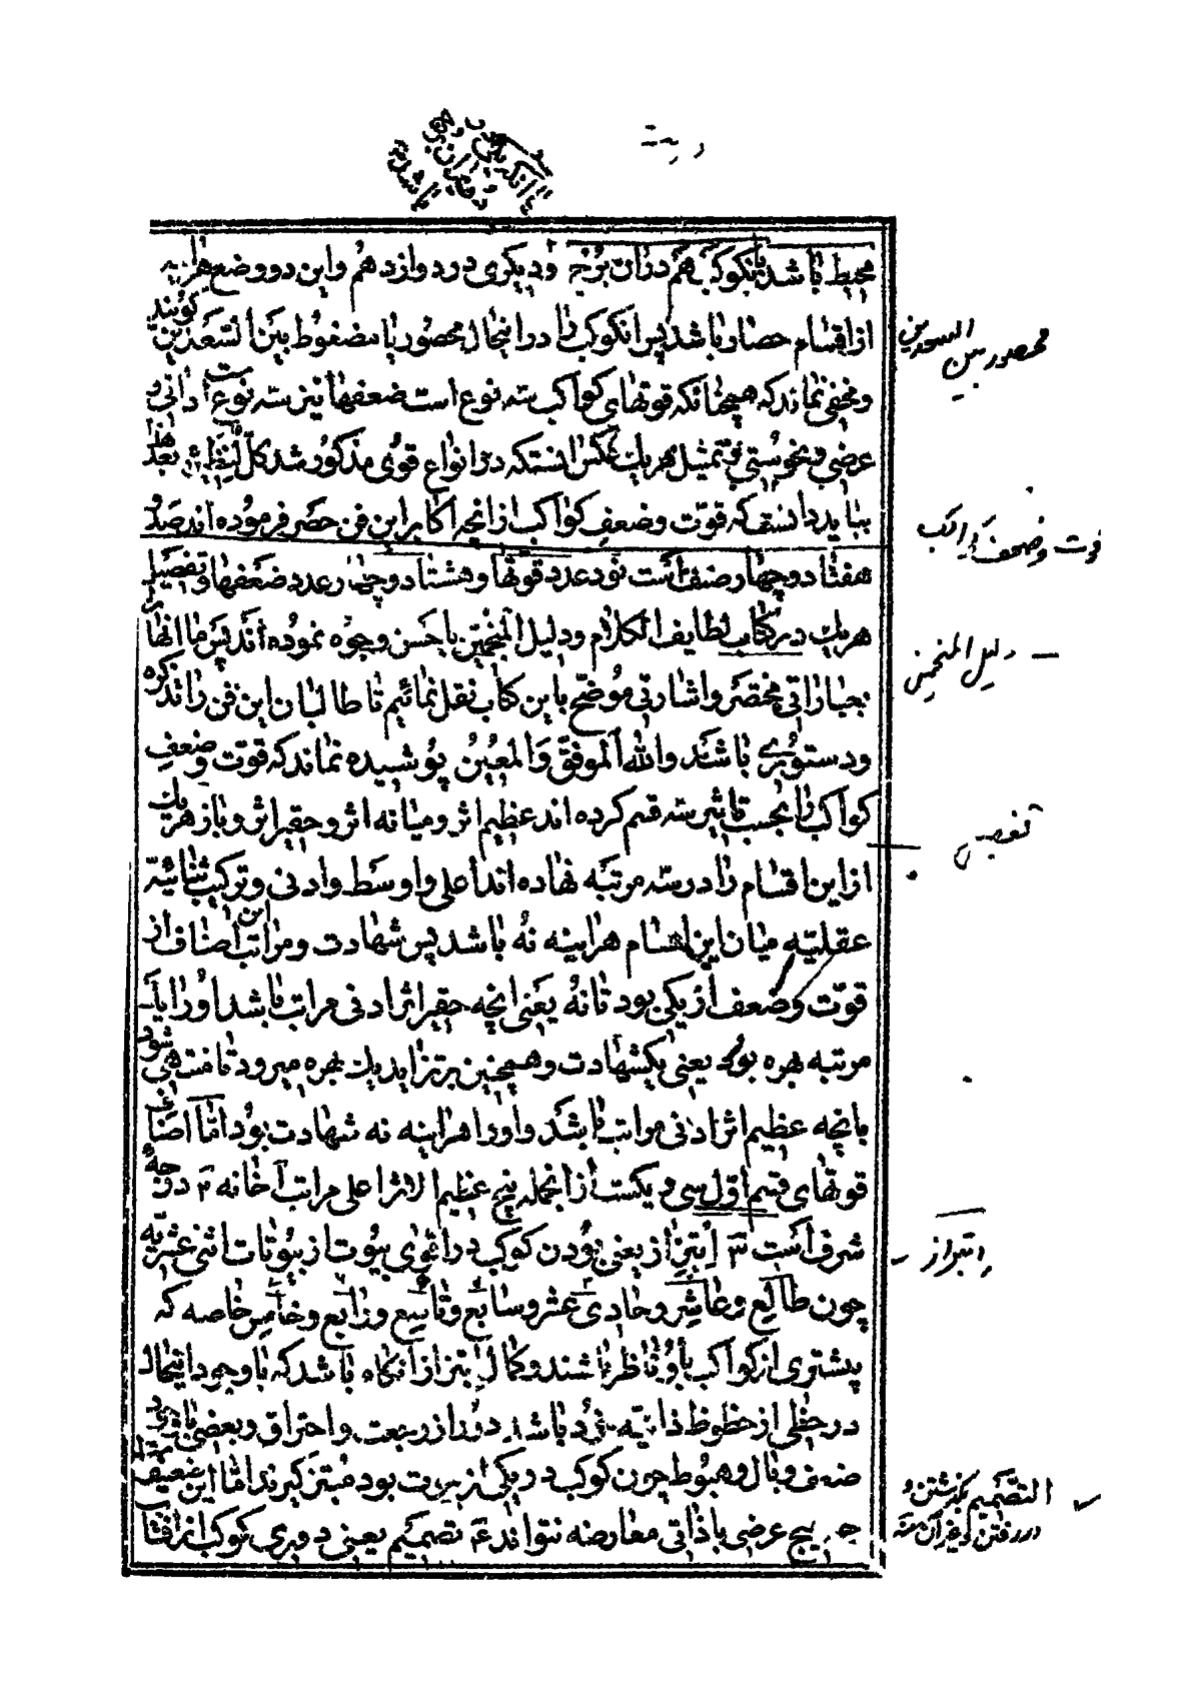 محیط باشد یا بکوکب هم دران برج و دیکری در دوازدهم و این دو وضع هر
از اقسام حصار باشد پس انکوکب را در اینحال محصور یا مضغوط بین السعدین کویند
و مخفی نماند که همچنانکه قوتهای کواکب سه نوع است ضعفها نیز سه نوع است ذاتی و
عرضی و تمثیل هر یك بعکس انستکه در انواع قوی مذکور شد بعد هذا
بباید دانست که قوت و ضعف کواکب از انچه اکابر این فن حصر فرموده اند صد و
هفتاد و چهار صنف است نود عدد قوتها و هشتاد و چهار عدد ضعفها و تفصیل
هر یك در کتاب لطایف الکلام و دلیل المنجمین باحسن وجوه نموده اند پس ما انها را
بعباراتی مختصر و اشارتی موضح باین کتاب نقل نمائیم تا طالبان این فن را تذکره
و دستوری باشد والله الموفق والمعین پوشیده نماند که قوت و ضعف
کواکب را بحسب تاثیر سه قسم کرده اند عظیم اثر و میانه اثر و حقیر اثر و باز هر یك
از این اقسام را در سه مرتبه نهاده اند اعلی و اوسط و ادنی و ترکیب ثنائیه
عقلیه میان این اقسام هراینه نه باشد پس شهادت و مراتب این اصناف از
قوت و ضعف از یکی بود تا نه یعنی انچه حقیر اثر ادنی مراتب باشد او را یك
مرتبه بهره بود یعنی یکشهادت و همچنین بر تزاید یك بهره میرود تا منتهی شود
بانچه عظیم اثر ادنی مراتب باشد و او را هراینه نه شهادت بود اما اصناف
قوتهای قسم اول سی و یکست از انجمله پنج عظیم الاثر اعلی مراتب ۱ خانه ۲ درجه
شرف است ۳ ابتزاز یعنی بودن کوکب در اقوای بیوت از بیوتات اثنی عشریه
چون طالع و عاشر و حادی عشر و سابع و تاسع و رابع و خامس خاصه که
پیشتری از کواکب باو ناظر باشند و کمال ابتزاز انکاه باشد که با وجود اینحال
در حظی از حظوظ ذاتیه خود باشد دور از رجعت و احتراق و بعضی
ضعف وبال و هبوط چون کوکب در یکی از بیوت بود مبتز کیرند اما این ضعیفست
چه هیچ عرضی با ذاتی معارضه نتواند ۴ تصمیم یعنی دوری کوکب از افتاب
محصور بین السعدین
قوت و ضعف کواکب
دلیل المنجمین
تفصیل
ابتزاز
التصمیم بکذشتن و
در رفتن و غیر آن منه